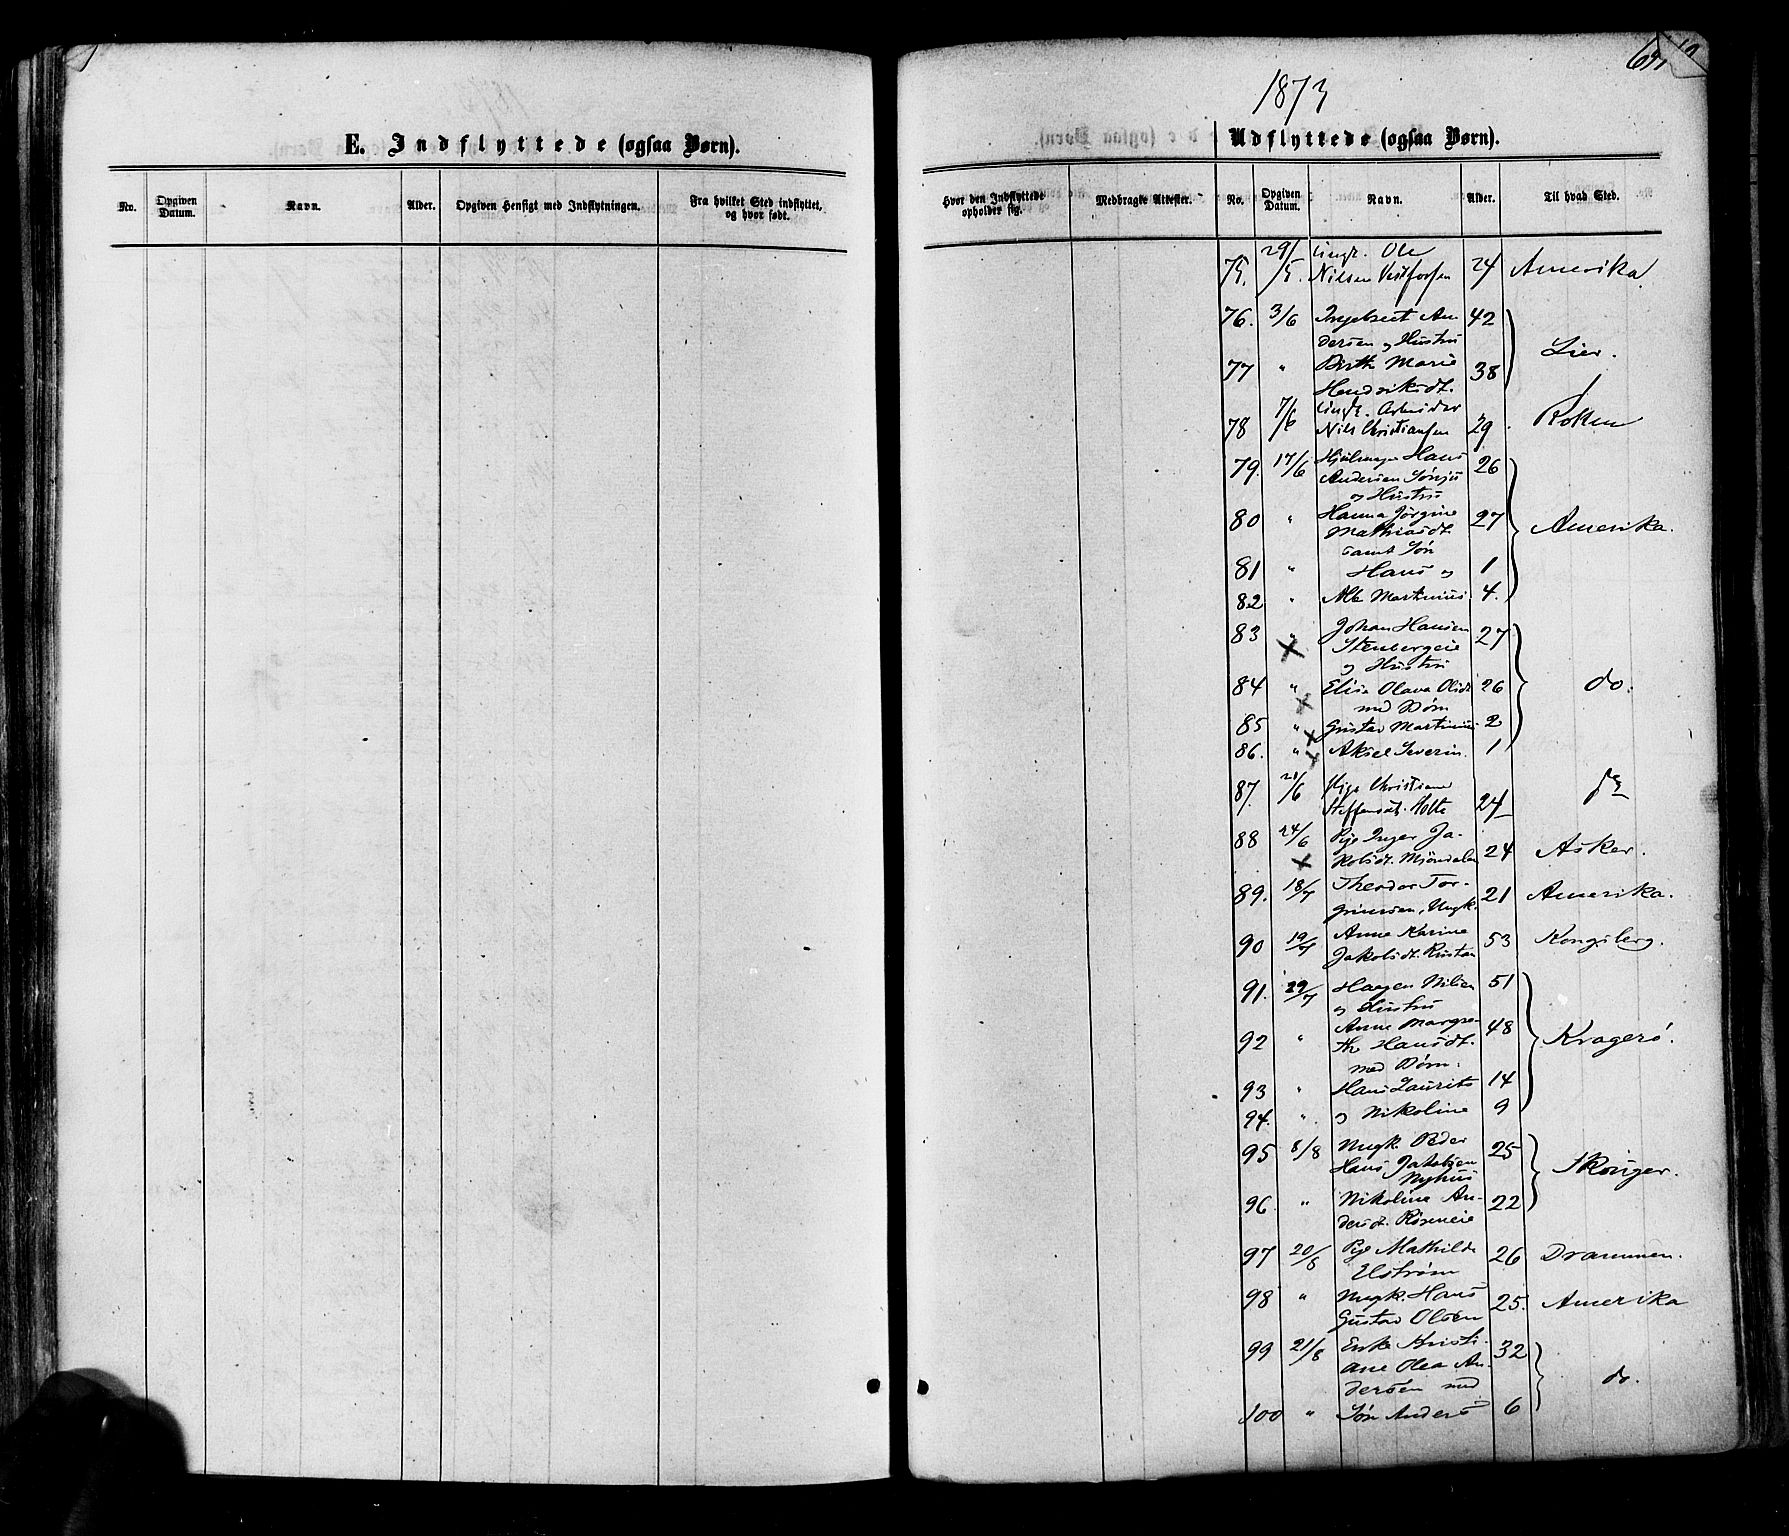 1873
E. Indflyttede (ogsaa Børn).
Udflyttede (ogsaa Børn).
No. Opgiven Datum. Navn. Alder. Opgiven Hensigt med Indflytningen. Fra hvilket Sted indflyttet, og hvor født.
Hvor den Indflyttede opholder sig. Medbragte Attester. No. Opgiven Datum. Navn. Alder. Til hvad Sted.
75. 29/5. Ungk. Ole
Nilsen Vestfossen 24 Amerika.
76. 3/6 Ingebret An-
dersen og Hustru 42
77 " Birth Marie
Hendriksdt. 38 Lier.
78 7/6 Ungk. Arbeider
Nils Christiansen 29. Røken
79. 17/6 Hjulmager Hans 26
Andersen
og Hustru
80 " Hanna Jørgine 27 Amerika.
Mathiasdt
samt Søn
81 " Hans og 1
82 " Martinius. 4.
83 " Johan Hansen 27
Stenbergeie
og Hustru
84 " Elise Olava Olsdt 26 do.
med Børn
85 " Gustav Martinius 2
86. " Aksel Severin. 1
87. 21/6 Pige Christiane
Steffensdt. Holte 24 do
88 24/6 Pige Inger Ja-
kobsdt. Mjøndalen 24 Asker.
89. 18/7 Theodor Tor-
grimsen, Ungk. 21 Amerika.
90 19/7 Anne Karine
Jakobsdt. Rustan 53 Kongsberg.
91. 29/7 Haagen Nilsen 51
og Hustru
92 " Anne Margre-
the Hansdt. 48 Kragerø.
med Børn:
93 " Hans Laurits 14
94. " og Nikoline 9
95 8/8 Ungk. Peder 25
Hans Jakobsen
Nyhus Skouger.
96. " Nikoline An-
dersdt. Røseneie 22
97 20/8 Pige Mathilde 26 Drammen.
Elstrøm
98 " Ungk. Hans
Gustav Olsen 25. Amerika
99 21/8 Enke Kristi- 32
ane Olea An-
dersen med do.
100 " Søn Anders 6